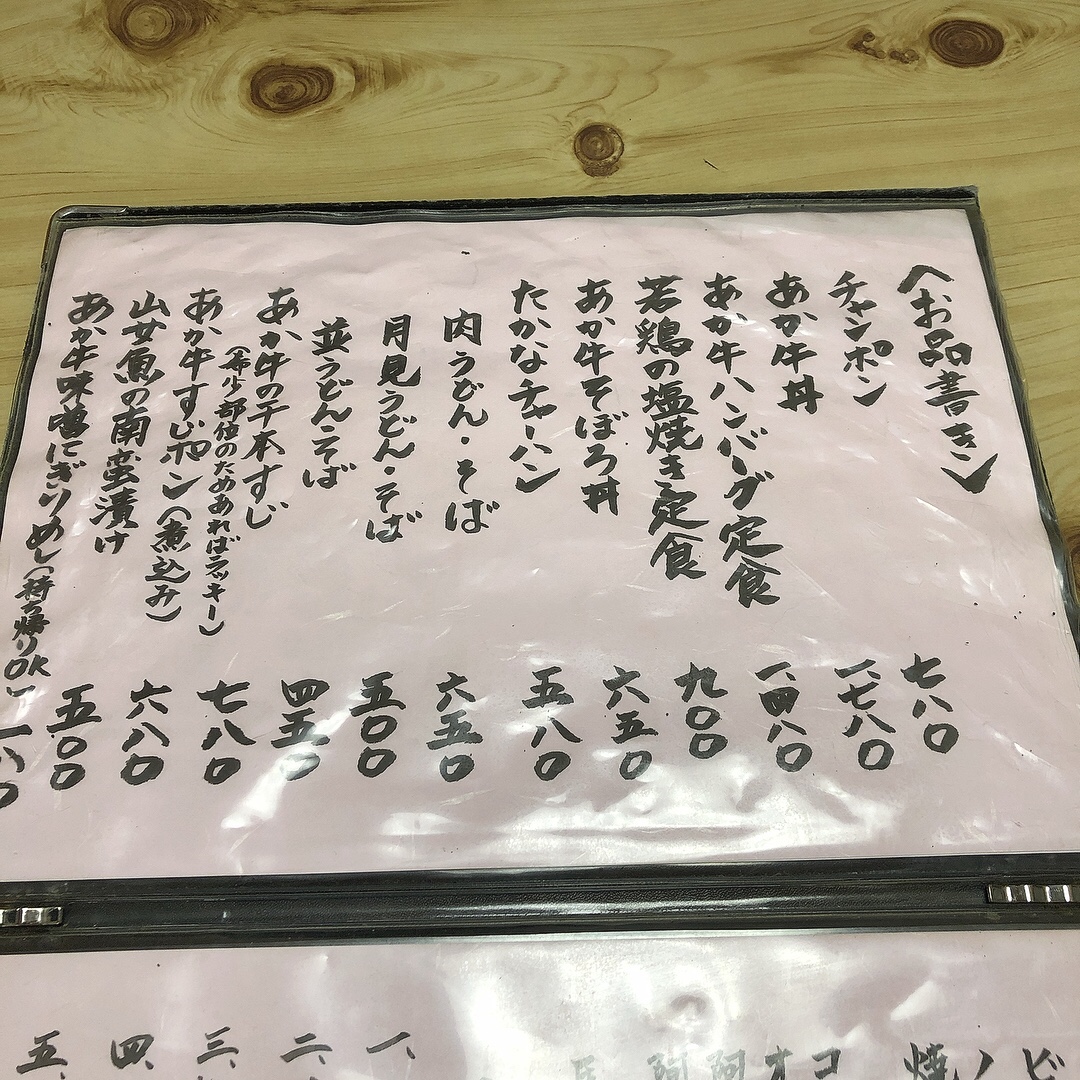 〈お品書き〉
チャンポン 七八〇
あか牛丼 一、七八〇
あか牛ハンバーグ定食 一、四八〇
若鶏の塩焼き定食 九〇〇
あか牛そぼろ丼 六五〇
たかなチャーハン 五八〇
肉うどん・そば 六五〇
月見うどん・そば 五〇〇
並うどん・そば 四五〇
あか牛の千本すじ 七八〇
(希少部位のためあればラッキー)
あか牛すじポン(煮込み) 六八〇
山女魚の南蛮漬け 五〇〇
あか牛味噌にぎりめし(持ち帰りOK) 一八〇
ビ
ノ
焼
コ
オ
阿
阿
一、
二、
三、
四、
五、